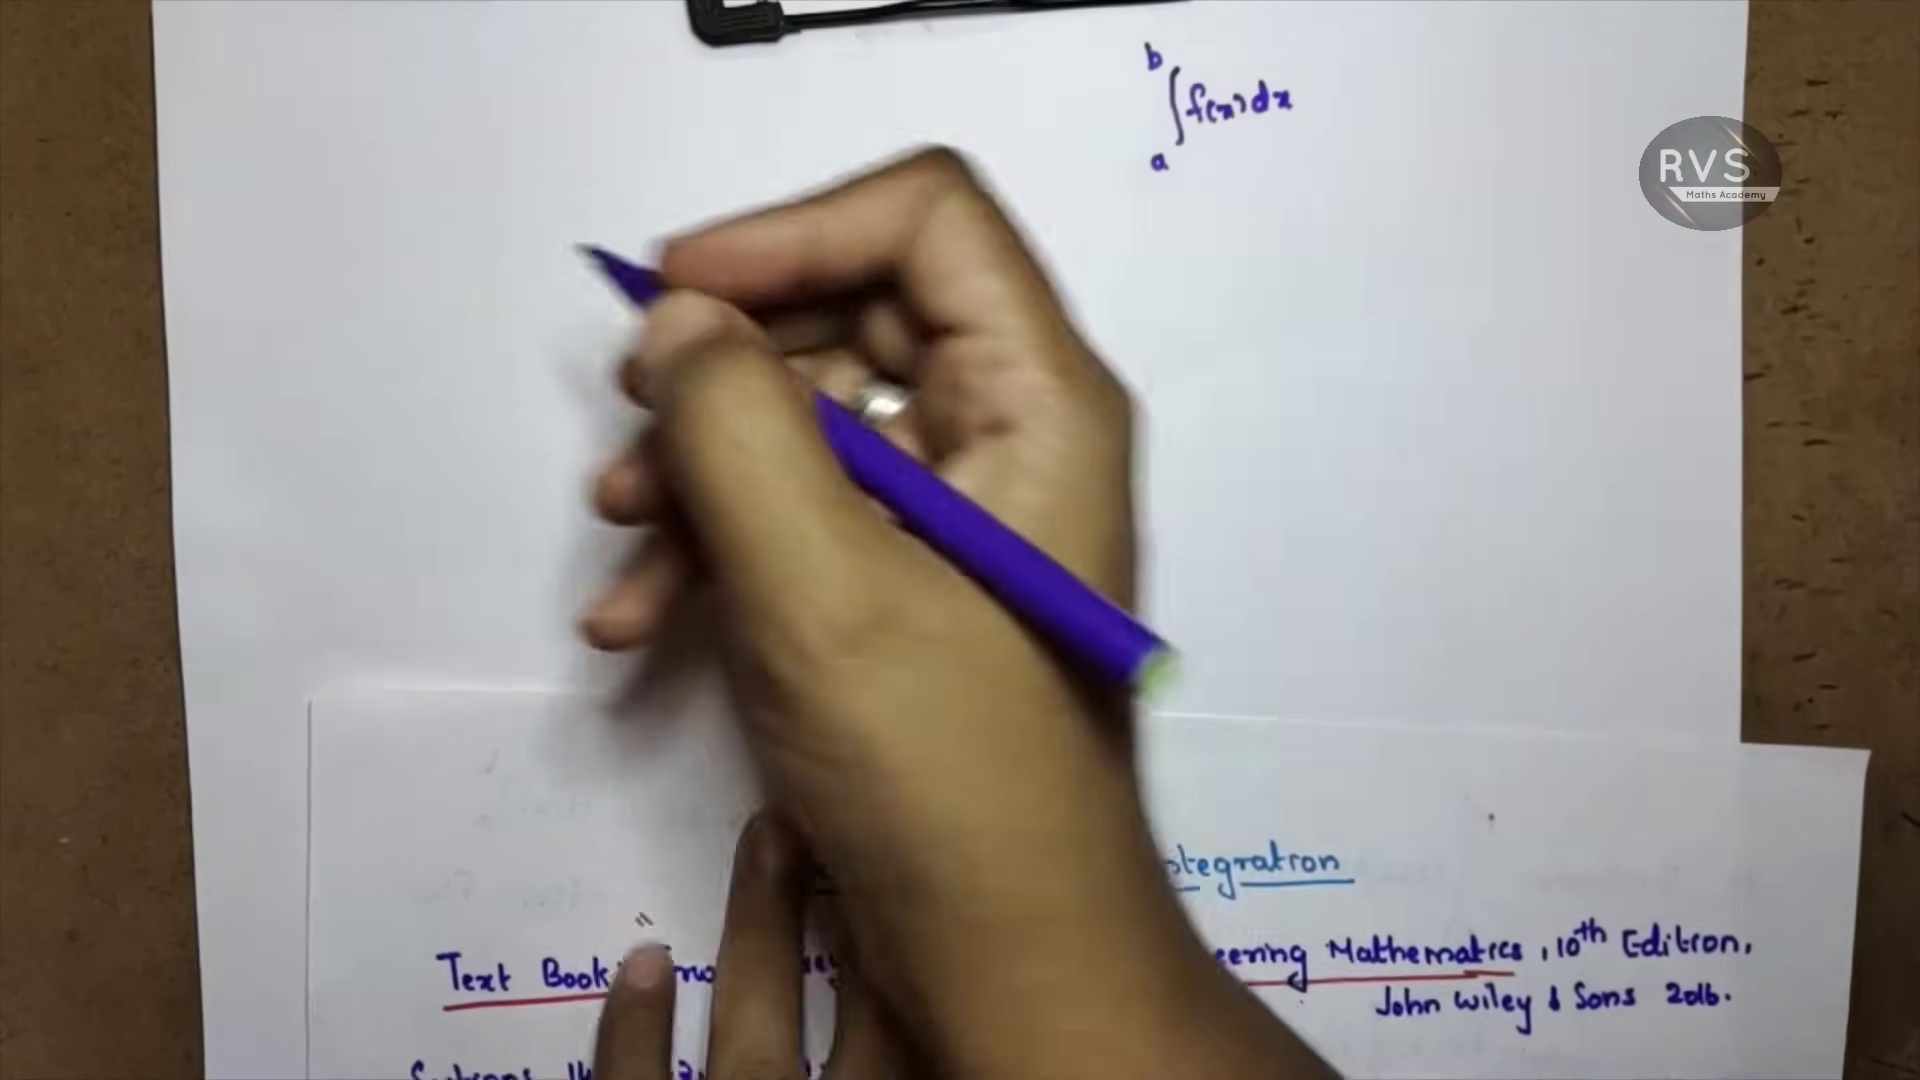 b
∫f(x)dx
a
RVS
Maths Academy
ntegration
Text Book
eering Mathematics, 10th Edition,
John Wiley & Sons 2016.